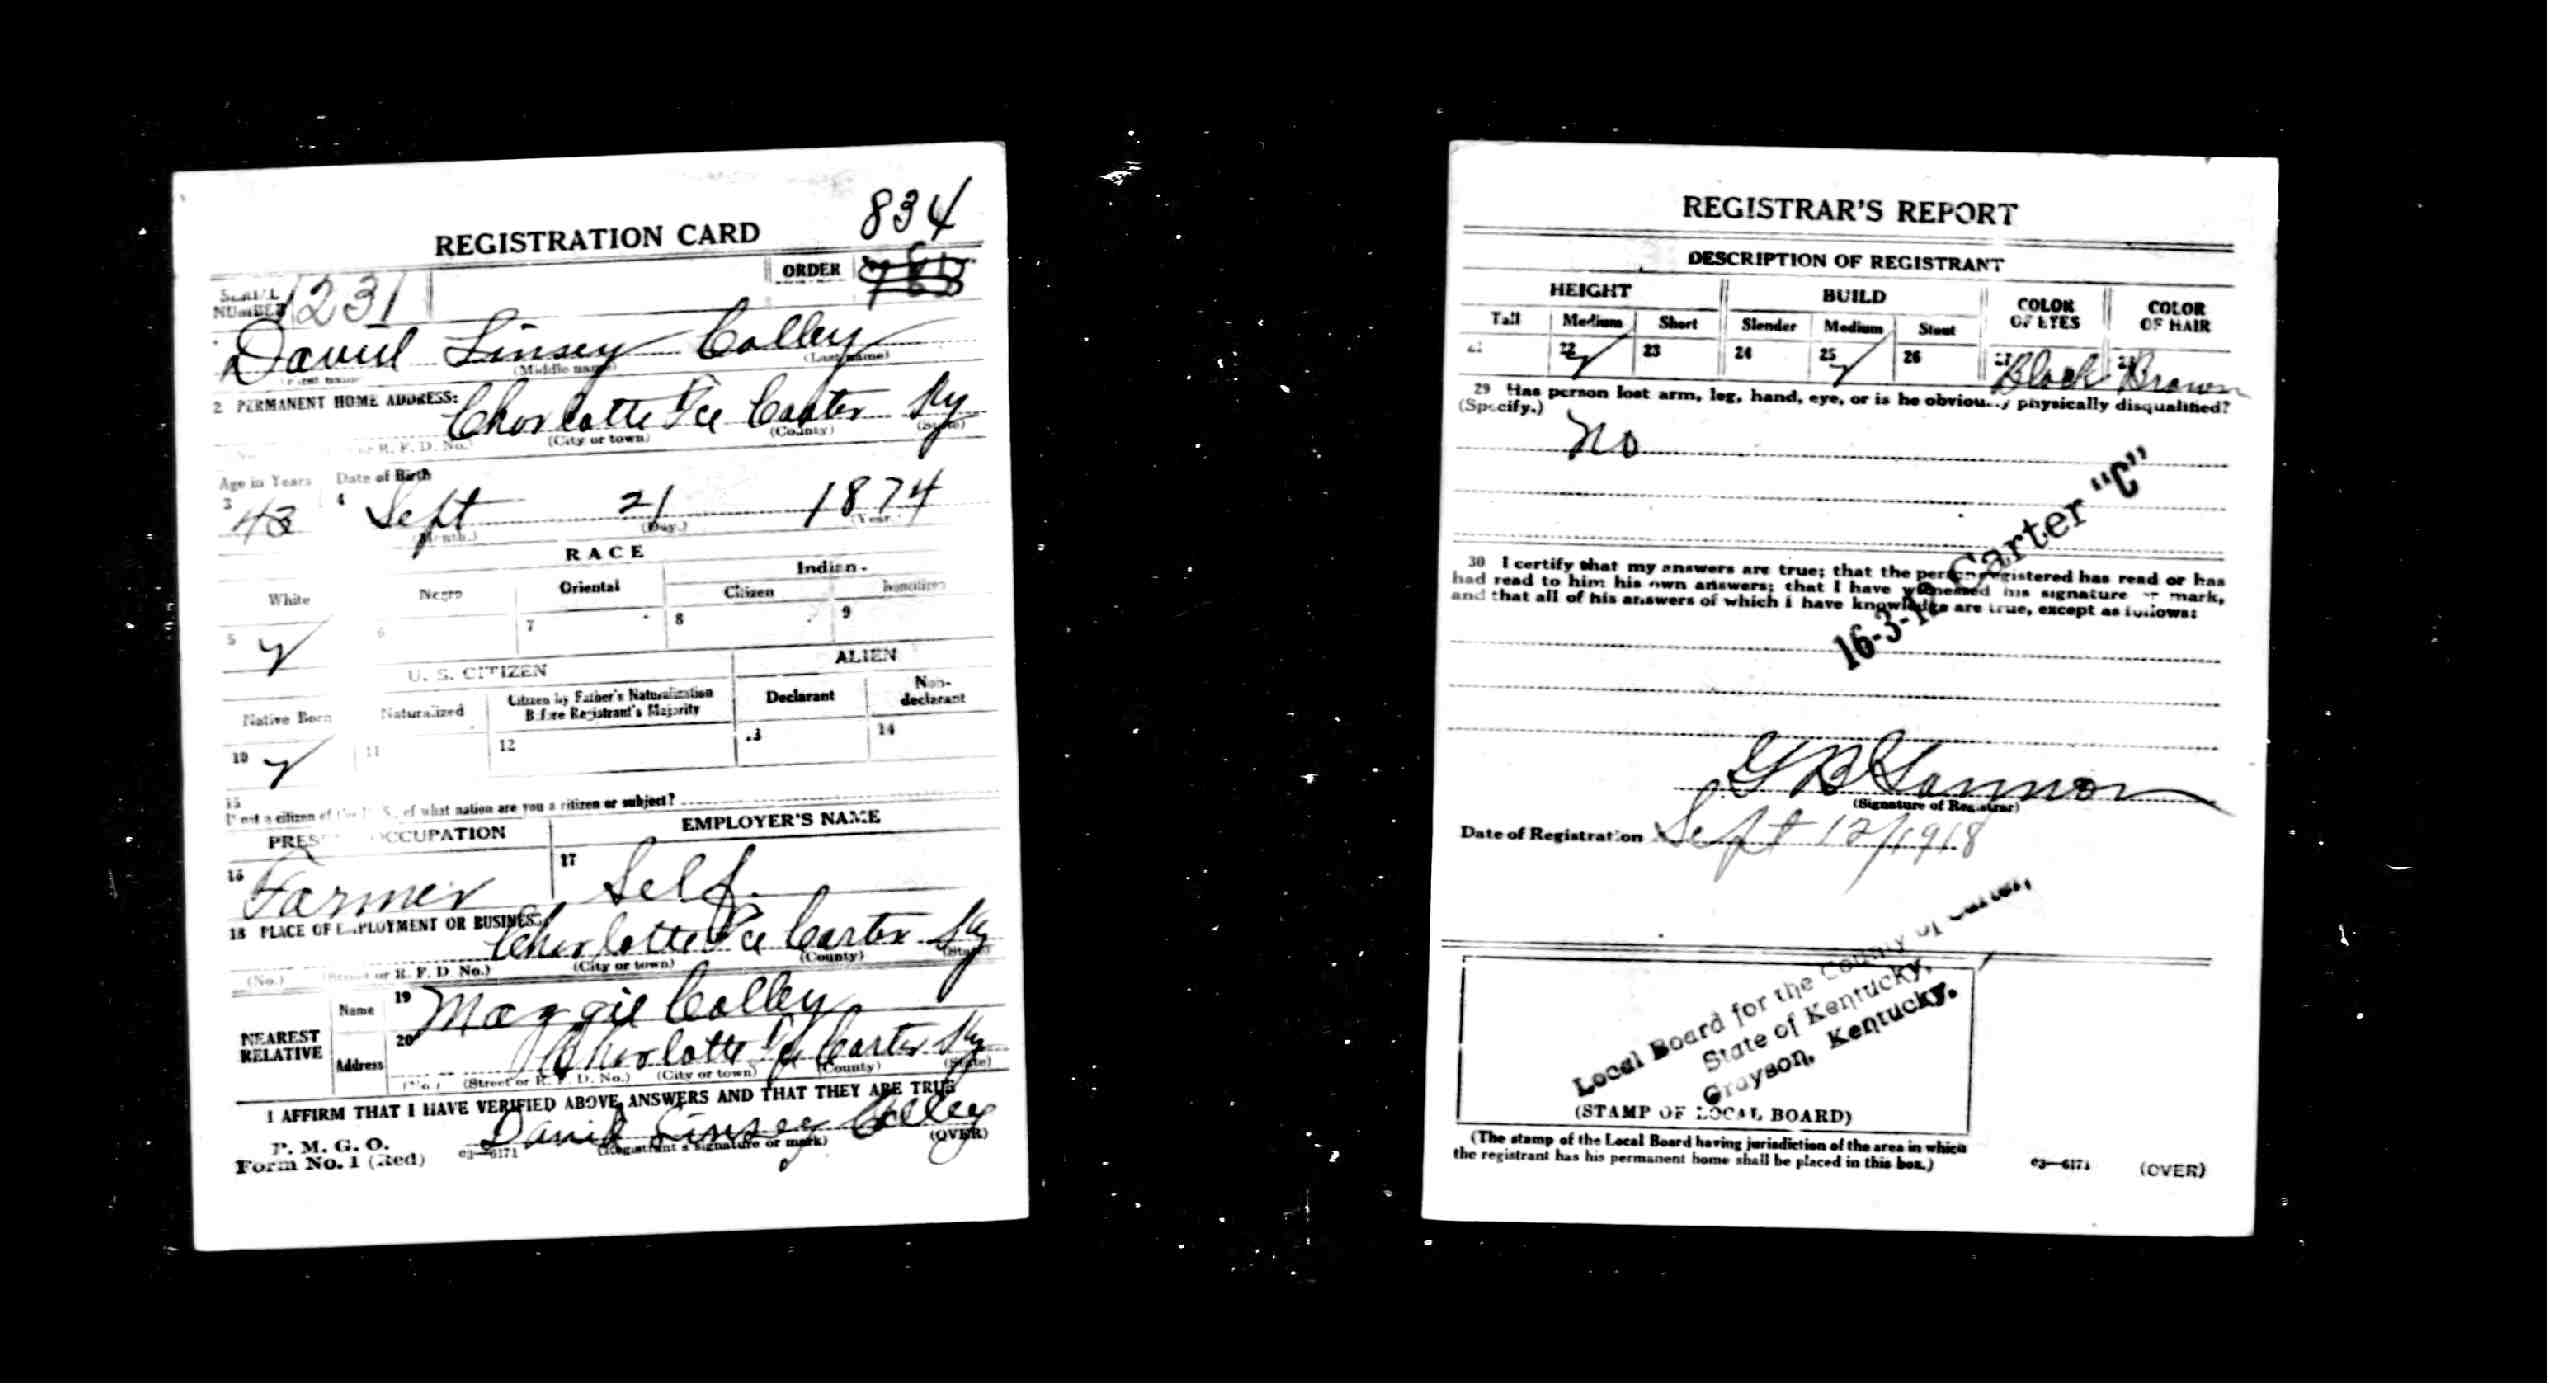 834
REGISTRATION CARD
SERIAL NUMBER 1231 ORDER
David Linsey Colley
(First name) (Middle name) (Last name)
2 PERMANENT HOME ADDRESS:
Charlotte Fce Carter Ky
(No.) R. F. D. No.) (City or town) (County) (State)
Age in Years Date of Birth
3 43 4 Sept 21 1874
(Month.) (Day.) (Year.)
RACE
White Negro Oriental Indian
Citizen Noncitizen
5 ✓ 6 7 8 9
U. S. CITIZEN ALIEN
Native Born Naturalized Citizen by Father's Naturalization Before Registrant's Majority Declarant Non-declarant
10 ✓ 11 12 13 14
15
If not a citizen of the U. S., of what nation are you a citizen or subject?
PRESENT OCCUPATION EMPLOYER'S NAME
16 Farmer 17 Self
18 PLACE OF EMPLOYMENT OR BUSINESS:
Charlotte Fce Carter Ky
(No.) (Street or R. F. D. No.) (City or town) (County) (State)
NEAREST RELATIVE
Name 19 Maggie Colley
Address 20 Charlotte Fce Carter Ky
(No.) (Street or R. F. D. No.) (City or town) (County) (State)
I AFFIRM THAT I HAVE VERIFIED ABOVE ANSWERS AND THAT THEY ARE TRUE
P. M. G. O.
Form No. 1 (Red) 03—6171 David Linsey Colley
(Registrant's signature or mark) (OVER)
REGISTRAR'S REPORT
DESCRIPTION OF REGISTRANT
HEIGHT BUILD COLOR OF EYES COLOR OF HAIR
Tall Medium Short Slender Medium Stout
21 22 ✓ 23 24 25 ✓ 26 27 Black 28 Brown
29 Has person lost arm, leg, hand, eye, or is he obviously physically disqualified?
(Specify.)
No
16-3-12 Carter "C"
30 I certify that my answers are true; that the person registered has read or has
had read to him his own answers; that I have witnessed his signature or mark,
and that all of his answers of which I have knowledge are true, except as follows:
(Signature of Registrar)
Date of Registration Sept 12/1918
Local Board for the County of Carter,
State of Kentucky,
Grayson, Kentucky.
(STAMP OF LOCAL BOARD)
(The stamp of the Local Board having jurisdiction of the area in which
the registrant has his permanent home shall be placed in this box.)
03—6171 (OVER)